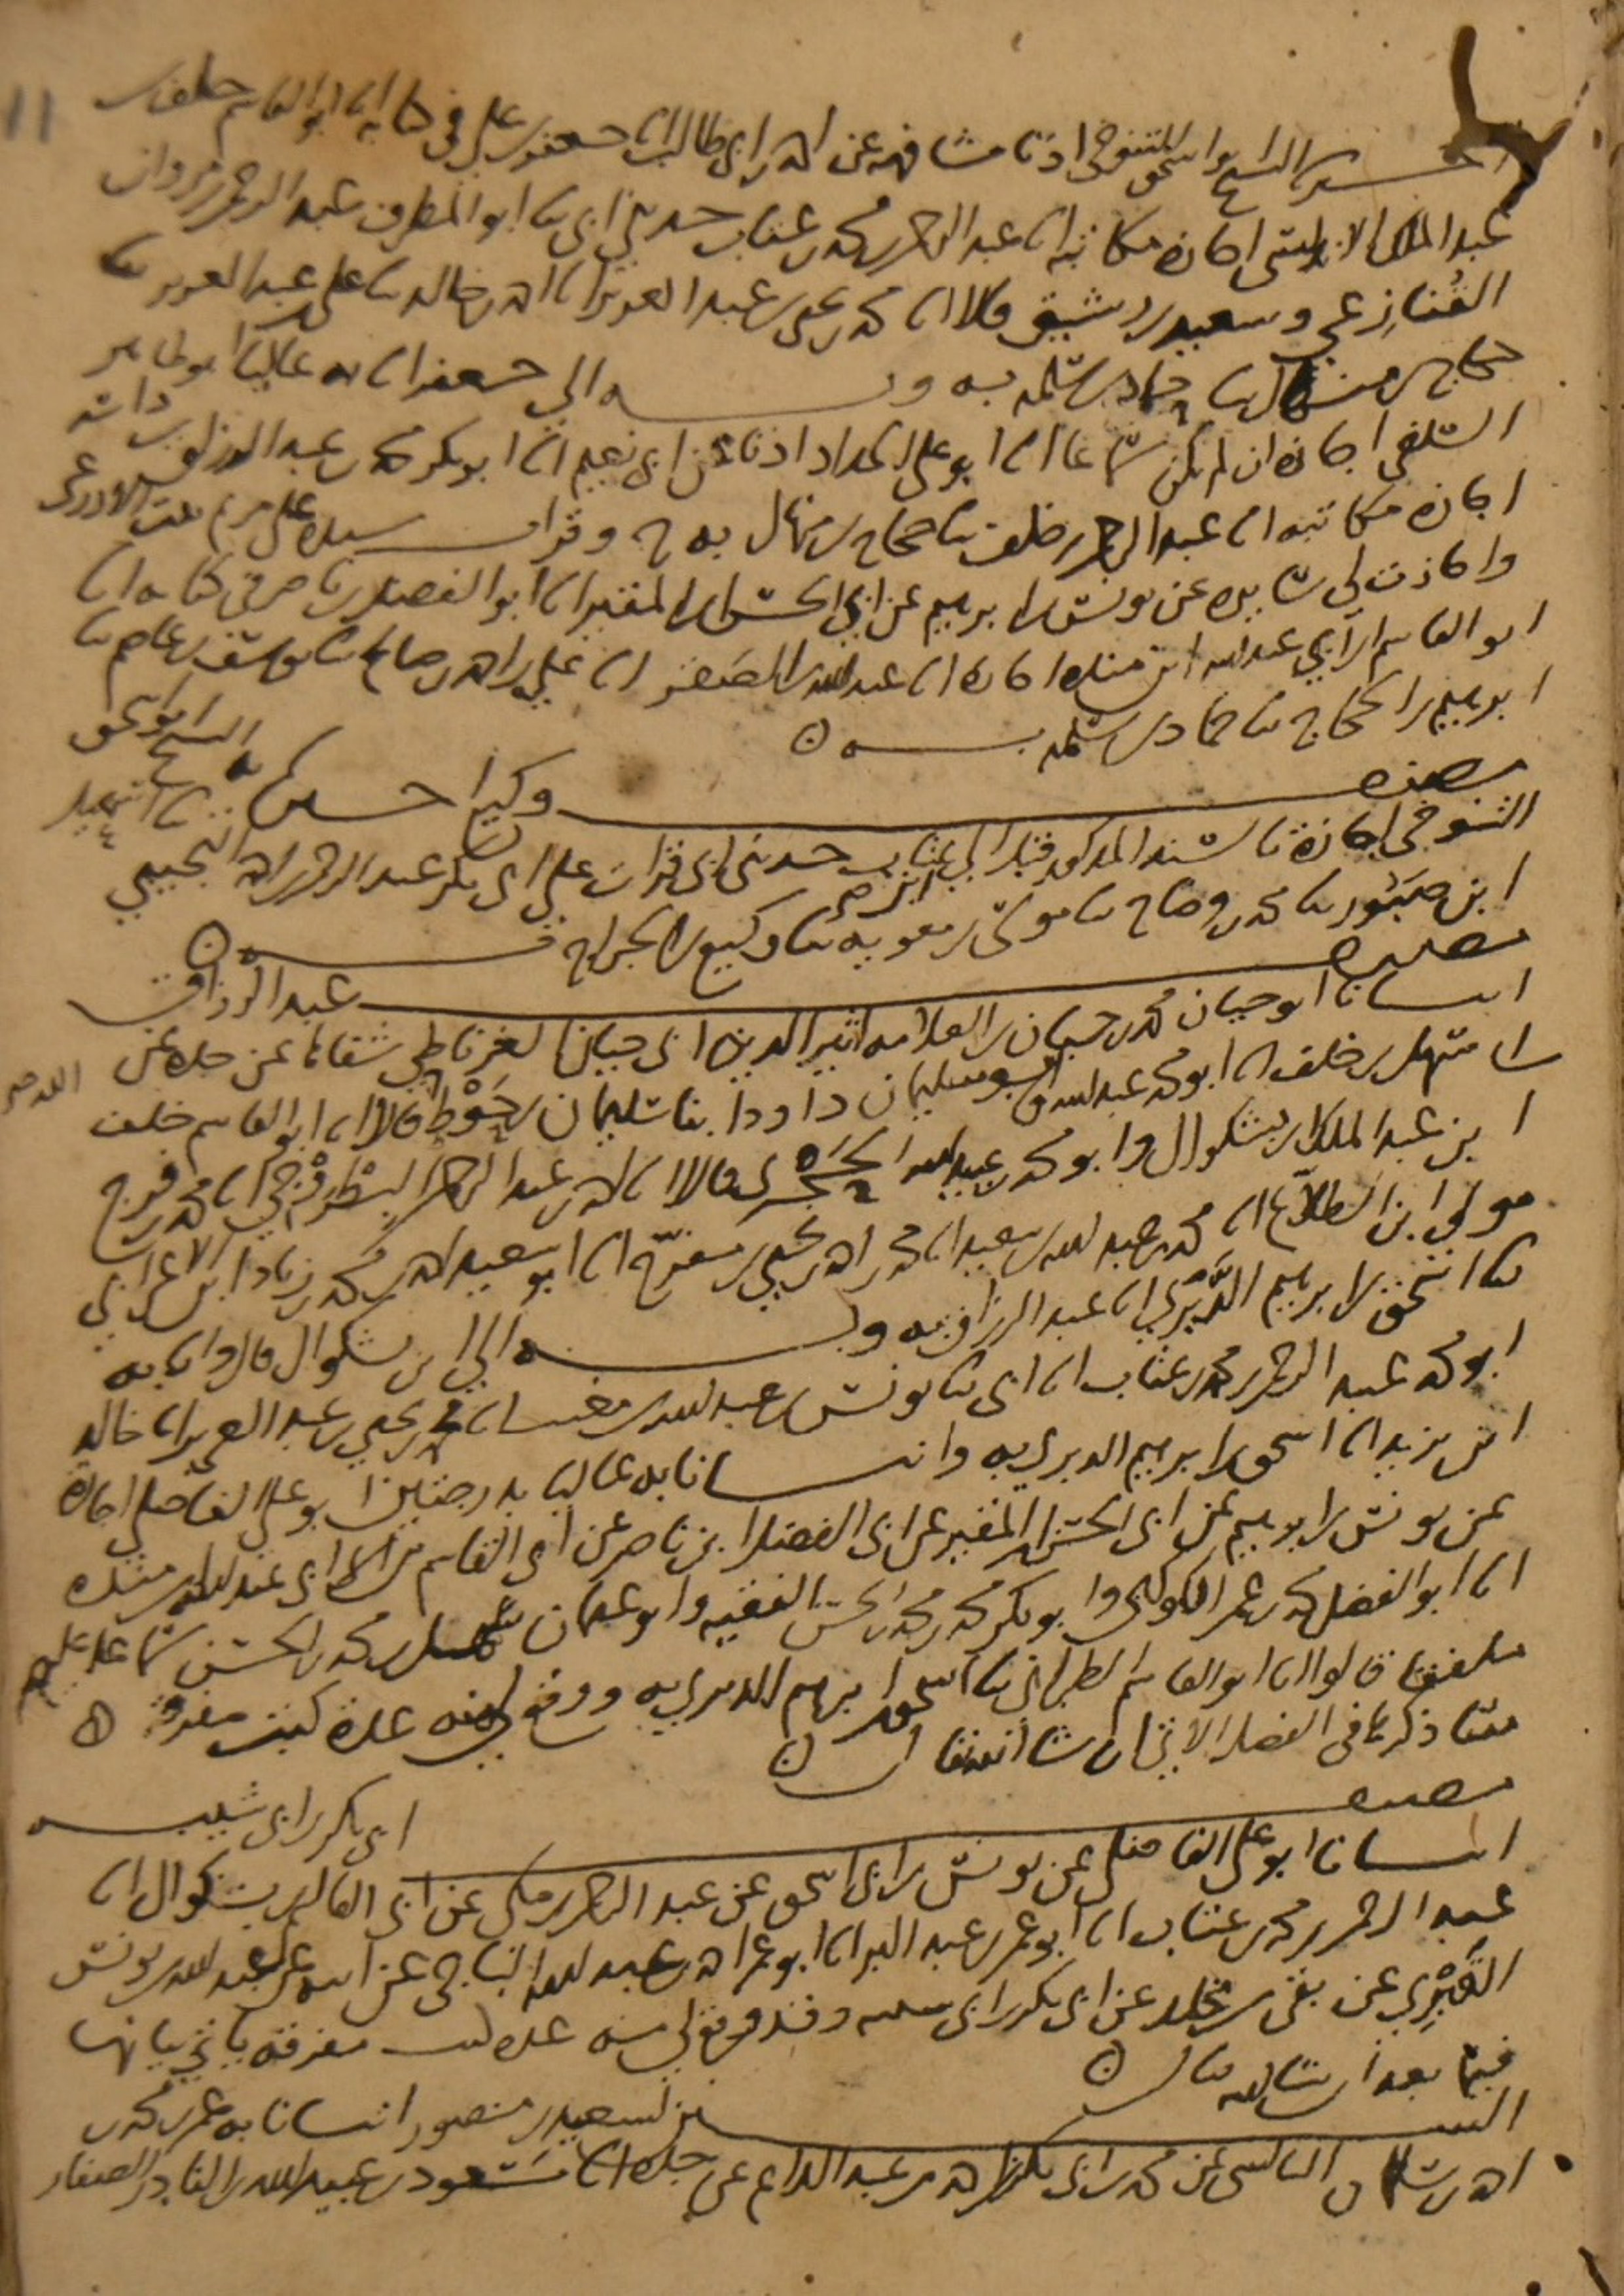 11
الشيخ ابو اسحق التنوخي اذنا مشافهة عن احمد بن ابي طالب انا جعفر بن علي في كتابه انا ابو القاسم خلف بن
عبد الملك الاندلسي اجازة مكاتبة انا عبد الرحمن بن محمد بن عتاب حدثني ابي نا ابو المطرف عبد الرحمن بن مروان
القنازعي وسعيد بن رشيق قالا انا محمد بن يحيى بن عبد العزيز انا احمد بن خالد نا علي بن عبد العزيز نا
حجاج بن منهال نا حماد بن سلمة به وبه الى جعفر انا به عاليا ابو طاهر
السلفي اجازة ان لم يكن سماعا انا ابو علي الحداد اذنا عن ابي نعيم انا ابو بكر محمد بن عبد الرزاق بن داسة
اجازة مكاتبة انا عبد الرحمن بن خلف نا حجاج بن منهال به ح وقرات على مريم بنت الاذرعي
واجازت لي عن يونس بن ابرهيم عن ابي الحسن بن المقير انا ابو الفضل بن ناصر في كتابه انا
ابو القاسم بن ابي عبد الله ابن منده اجازة انا عبد الله بن الصقر انا علي بن احمد بن صالح نا يوسف بن عاصم نا
ابرهيم بن الحجاج نا حماد بن سلمة به
مصنف وكيع الشيخ ابو اسحق
التنوخي اجازة بالسند المذكور قبل الى ابن عتاب حدثني ابي قرات على ابي بكر عبد الرحمن بن احمد التجيبي
ابن حبيور نا محمد بن وضاح نا موسى بن معوية نا وكيع بن الجراح به
مصنف عبد الرزاق
انبانا ابو حيان محمد بن حيان بن العلامة اثير الدين ابي حيان الغرناطي شفاها عن جده عن
سهل بن خلف انا ابو محمد عبد الله وابو سليمان داود ابنا سليمان بن حوط قالا انا ابو القاسم خلف
ابن عبد الملك بن بشكوال وابو محمد بن عبيد الله الحجري قالا انا احمد بن عبد الرحمن البطروجي انا محمد بن فرج
مولى ابن الطلاع انا محمد بن عبد الله بن سعيد انا محمد بن احمد بن يحيى بن مفرج انا ابو سعيد احمد بن محمد بن زياد ابن الاعرابي
نا اسحق بن ابرهيم الدبري انا عبد الرزاق به وبه الى ابن بشكوال قال وانا به
ابو محمد عبد الرحمن بن محمد بن عتاب انا ابي نا يونس بن عبد الله بن مغيث انا محمد بن يحيى بن عبد العزيز انا خالد
ابن يزيد انا اسحق بن ابرهيم الدبري به وانبانا به عاليا بدرجتين ابو علي الفاضلي اجازة
عن يونس بن ابرهيم عن ابي الحسن بن المقير عن ابي الفضل ابن ناصر عن ابي القاسم بن ابي عبد الله بن منده
انا ابو الفضل محمد بن عمر الكوكبي وابو بكر محمد بن محمد بن الحسن الفقيه وابو عثمان سهل بن محمد بن الحسن سماعا عليهم
ملفقا قالوا انا ابو القاسم الطبراني نا اسحق بن ابرهيم الدبري به ووقع لي منه عدة كتب مفردة
مما ذكرنا في الفصل الاتي ان شا الله تعالى
مصنف ابي بكر بن ابي شيبه
انبانا ابو علي الفاضلي عن يونس بن ابي اسحق عن عبد الرحمن بن مكي عن ابي القاسم بن بشكوال انا
عبد الرحمن بن محمد بن عتاب انا ابو عمر بن عبد البر انا ابو عمر احمد بن عبد الله الباجي عن ابيه عن عبد الله بن يونس
القبري عن بقي بن مخلد عن ابي بكر بن ابي شيبه وقد وقع لي منه عدة كتب مفرقة ياتي بيانها
فيما بعد ان شا الله تعالى
السنن لسعيد بن منصور انبانا به عمر بن محمد بن
احمد بن سلمان البالسي عن محمد بن ابي بكر بن احمد بن عبد الدائم عن جده انا مسعود بن عبيد الله بن النادر الصفار